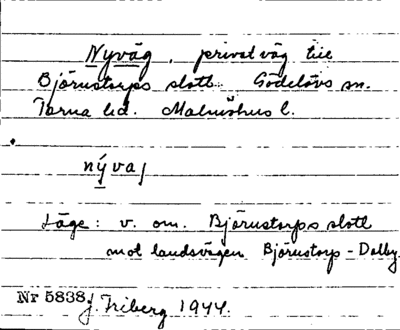 Nyväg, privat väg till
Björnstorps slott. Gödelövs sn.
Torna hd. Malmöhus l.
nývaj
Läge: v. om. Björnstorps slott
mot landsvägen Björnstorp - Dalby.
Nr 5838. J. Friberg 1944.